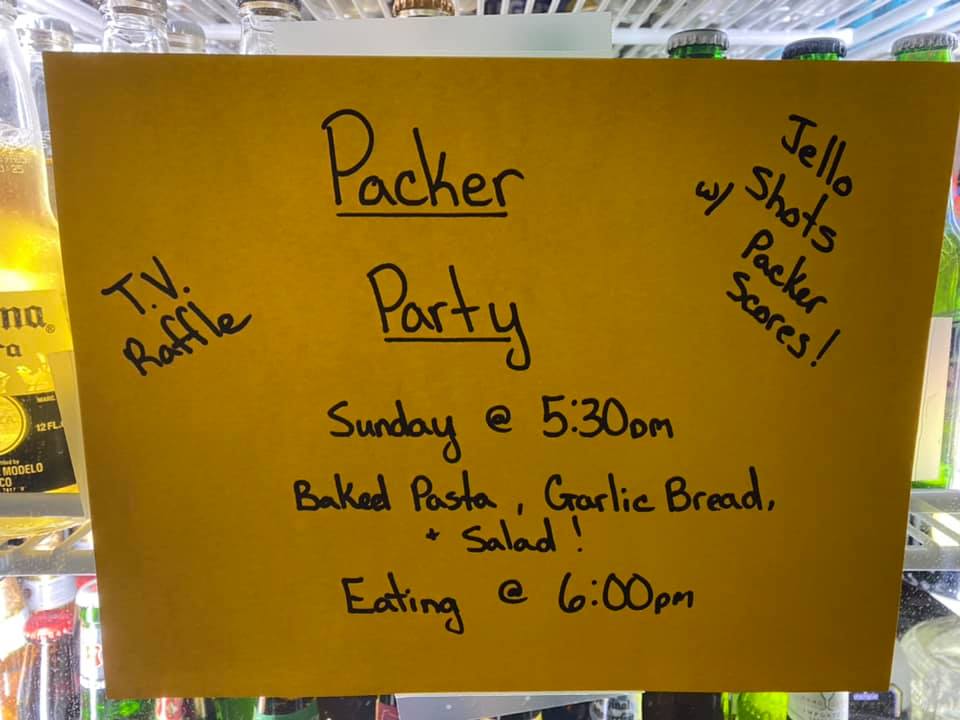 Packer
Party
T.V.
Raffle
Jello
Shots
w/ Packer
Scores!
Sunday @ 5:30pm
Baked Pasta, Garlic Bread,
+ Salad!
Eating @ 6:00pm
MODELO
12 FL.